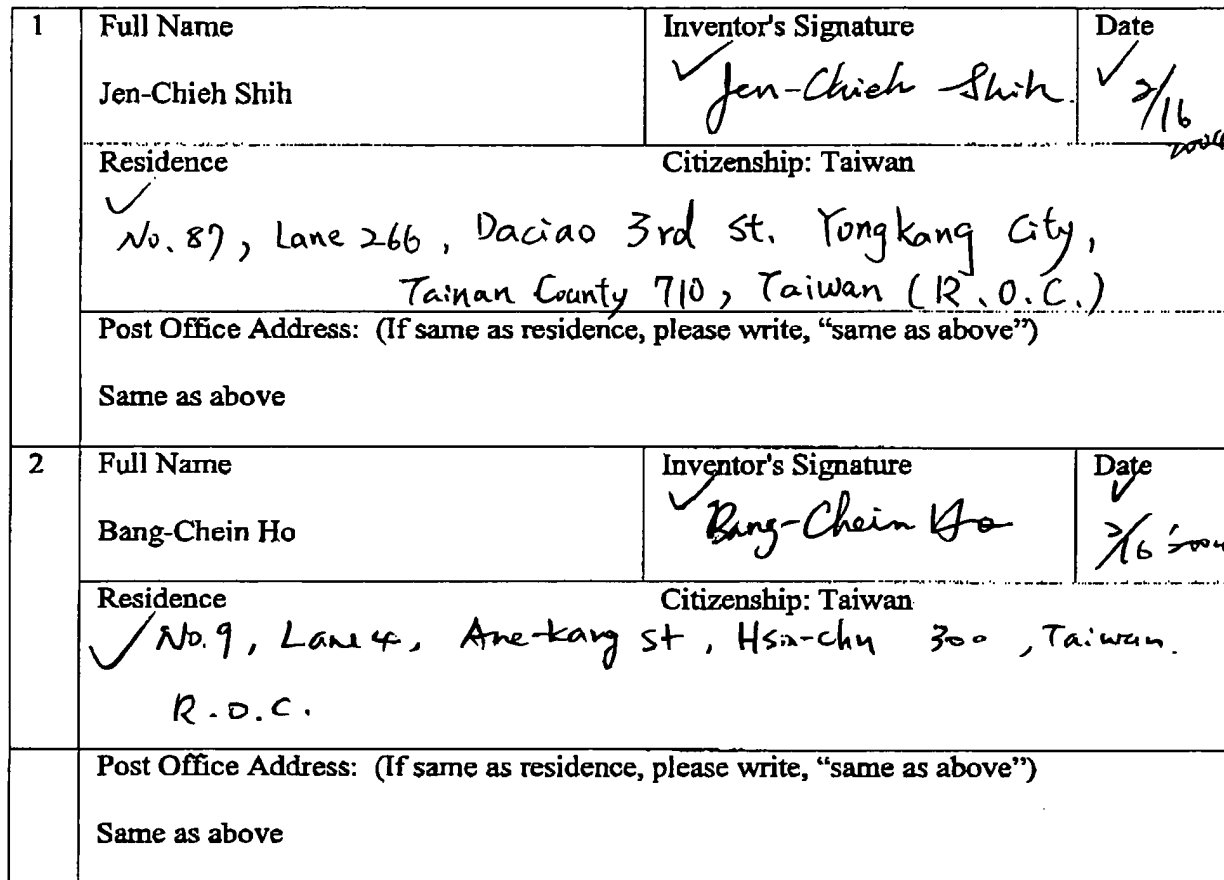 1 Full Name Inventor's Signature Date
Jen-Chieh Shih Jen-Chieh Shih. 2/16
2004
Residence Citizenship: Taiwan
No. 87, Lane 266, Daciao 3rd st. Yongkang City,
Tainan County 710, Taiwan (R.O.C.)
Post Office Address: (If same as residence, please write, “same as above”)
Same as above
2 Full Name Inventor's Signature Date
Bang-Chein Ho Bang-Chein Ho 2/16 2004
Residence Citizenship: Taiwan
No. 9, Lane 4, Ane-kang st, Hsin-chu 300, Taiwan.
R.O.C.
Post Office Address: (If same as residence, please write, “same as above”)
Same as above